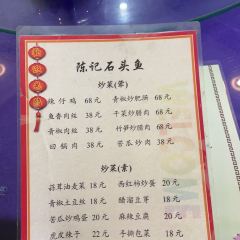 陈记石头鱼
炒菜(荤)
辣仔鸡 68元 青椒炒肥肠 68元
鱼香肉丝 38元 干菜炒腊肉 68元
青椒肉丝 38元 竹笋炒腊肉 68元
回锅肉 38元 苦瓜炒肉 38元
炒菜(素)
蒜茸油麦菜 18元 西红柿炒蛋 20元
青椒土豆丝 18元 醋溜豆芽 18元
苦瓜炒鸡蛋 20元 麻辣豆腐 20元
虎皮辣子 22元 手撕包菜 18元